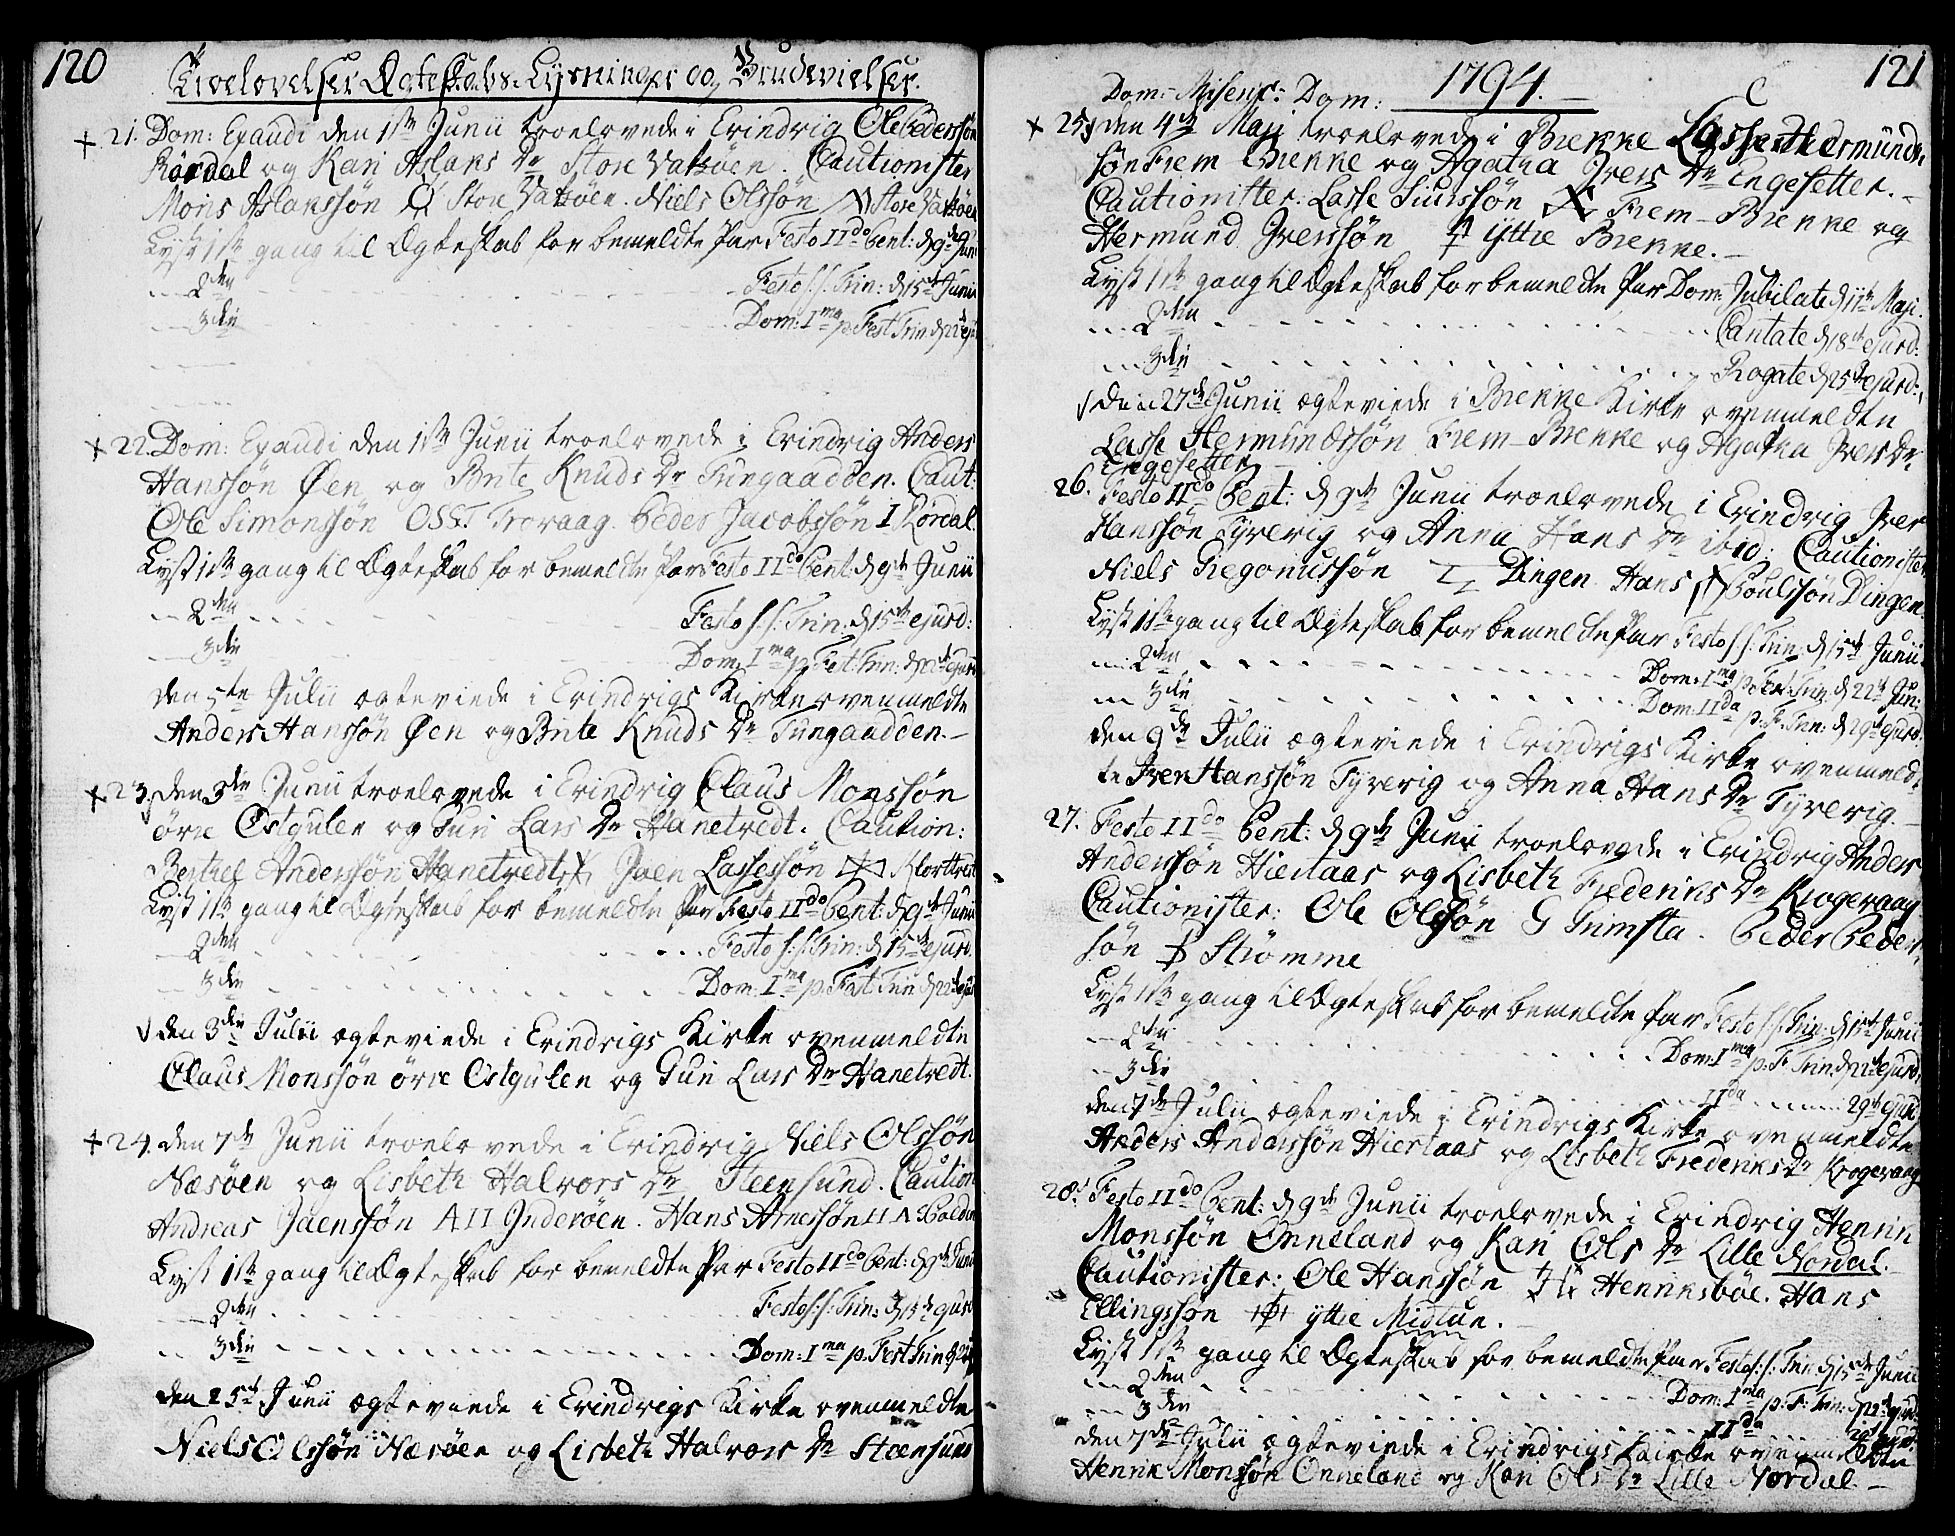 120
Troelovelser Ægteskabs-Lysninger og Brudevielser.
+ 21. Dom: Exaudi den 1ste Junii troelovede i Eivindvig Ole Pederssøn
Rørdal og Kari Aslaks Dr Store Vatzøen. Cautionister
Mons Aslakssøn Store Vatzøen. Niels Olssøn Store Vatzøen
Lyst 1ste gang til Ægteskab for bemeldte Par Festo IIdo Pent: d 9de Jun:
--- 2den - - - Festo S:S: Trin: d 15de Junii
--- 3die - - - Dom: Ima p. Fest Trin: d 22de ej:
+ 22. Dom: Exaudi den 1ste Junii troelovede i Eivindvig Anders
Hanssøn Øen og Brite Knuds Dr Tungaadden. Caut:
Ole Simonssøn OSS. Troraag. Peder Jacobssøn I Rørdal
Lyst 1ste gang til Ægteskab for bemeldte Par Festo IIdo Pent: d 9de Junii
--- 2den - - - Festo S:S: Trin: d 15de ejusd:
--- 3die - - - Dom: Ima p. Fest: Trin: d 22de ejusd:
den 5te Julii ægteviede i Eivindvigs Kirke ovenmeldte
Anders Hanssøn Øen og Brite Knuds Dr Tungaadden. -
+ 23. den 3die Junii troelovede i Eivindvig Claus Monssøn
øvre Østgulen og Guri Lars Dr Hanetvedt. Caution:
Berthel Anderssøn Hanetvedt, Joen Lassessøn
Lyst 1ste gang til Ægteskab for bemeldte Par Festo IIdo Pent: d 9de Junii
--- 2den - - - Festo S:S: Trin: d 15de ejusd.
--- 3die - - - Dom: Ima p: Fest Trin d 22de ej:
den 3die Julii ægteviede i Eivindvigs Kirke ovenmeldte
Claus Monssøn øvre Østgulen og Guri Lars Dr Hanetvedt.
+ 24. den 7de Junii troelovede i Eivindvig Niels Olssøn
Næsøen og Lisbeth Halvors Dr Steensund. Caution
Andreas Joenssøn AII Inderøen. Hans Arnessøn
Lyst 1ste gang til Ægteskab for bemeldte Par Festo IIdo Pent: d 9de Junii
--- 2den - - - Festo S:S: Trin: d 15de ejusd
--- 3die - - - Dom: Ima p. Fest Trin d 22de
den 25de Junii ægteviede i Eivindvigs Kirke ovenmeldte
Niels Olssøn Næsøen og Lisbeth Halvors Dr Steensund
1794.
121
Dom: Misenc: Dom:
+ 25. den 4de Maji troelovede i Brekke Lasse Hermunds-
søn Frem Brekke og Agatha Ivers Dr Engesetter. -
Cautionister: Lasse Siurssøn Frem-Brekke og
Hermund Iverssøn yttre Brekke. -
Lyst 1ste gang til Ægteskab for bemeldte Par Dom: Jubilate d 11te Maji.
--- 2den - - - Cantate d 18de ejusd:
--- 3die - - - Rogate d 25de ejusd:
den 27de Junii ægteviede i Brekke Kirke ovenmeldte
Lasse Hermundssøn Frem-Brekke og Agatha Ivers Dr.
Engesetter
26. Festo IIdo Pent: d 9de Junii troelovede i Eivindvig Iver
Hanssøn Tyvevig og Anna Hans Dr ibid: Cautionister
Niels Gregoriussøn Dingen Hans Poulssøn Dingen
Lyst 1ste gang til Ægteskab for bemeldte Par Festo S:S: Trin: d 15de Junii
--- 2den - - - Dom: Ima p. Fest: Trin: d 22de Jun:
--- 3die - - - Dom: IIda p: F: Trin: d 29de ejusd:
den 9de Julii ægteviede i Eivindvigs Kirke ovenmeld-
te Iver Hanssøn Tyvevig og Anna Hans Dr Tyvevig. -
27. Festo IIdo Pent: d 9de Junii troelovede i Eivindvig Anders
Anderssøn Hiertaas og Lisbeth Frederiks Dr Krogevaag
Cautionister: Ole Olssøn G Grimsta. Peder Peders-
søn Strømme
Lyst 1ste gang til Ægteskab for bemeldte Par Festo S:S: Trin: d 15de Junii
--- 2den - - - Dom: Ima p: F. Trin. d 22de ejusd:
--- 3die - - - IIda - - - 29de ejusd
den 7de Julii ægteviede i Eivindvigs Kirke ovenmeldte
Anders Anderssøn Hiertaas og Lisbeth Frederiks Dr Krogevaag
28. Festo IIdo Pent: d 9de Junii troelovede i Eivindvig Henrik
Monssøn Onneland og Kari Ols Dr Lille Nordal. -
Cautionister: Ole Hanssøn Henriksbøe. Hans
Ellingssøn yttre Mistun. -
Lyst 1ste gang til Ægteskab for bemeldte Par Festo S:S: Trin d 15de Junii
--- 2den - - - Dom: Ima p: F: Trin: d 22de ejusd:
--- 3die - - - IIda - - - 29de ejusd:
den 7de Julii ægteviede i Eivindvigs Kirke ovenmeldte
Henrik Monssøn Onneland og Kari Ols Dr Lille Nordal. -